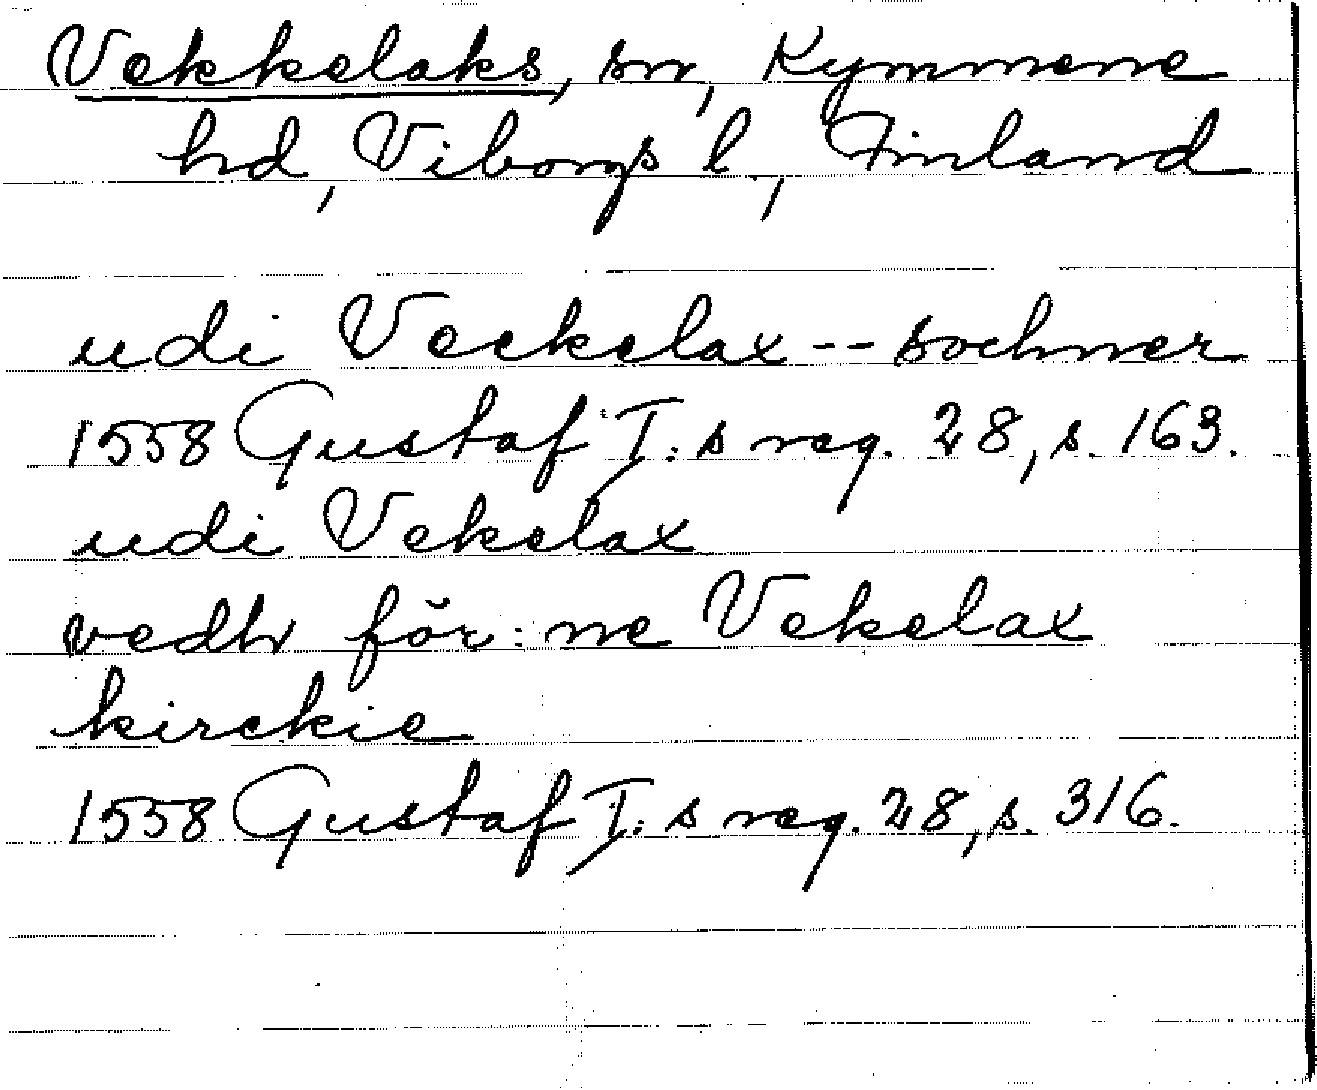 Vekkelaks, sn, Kymmene
hd, Viborgs l., Finland
udi Veckelax -- sochner
1558 Gustaf I:s reg. 28, s. 163.
udi Vekelax
vedh för:ne Vekelax
kirckie
1558 Gustaf I:s reg. 28, s. 316.